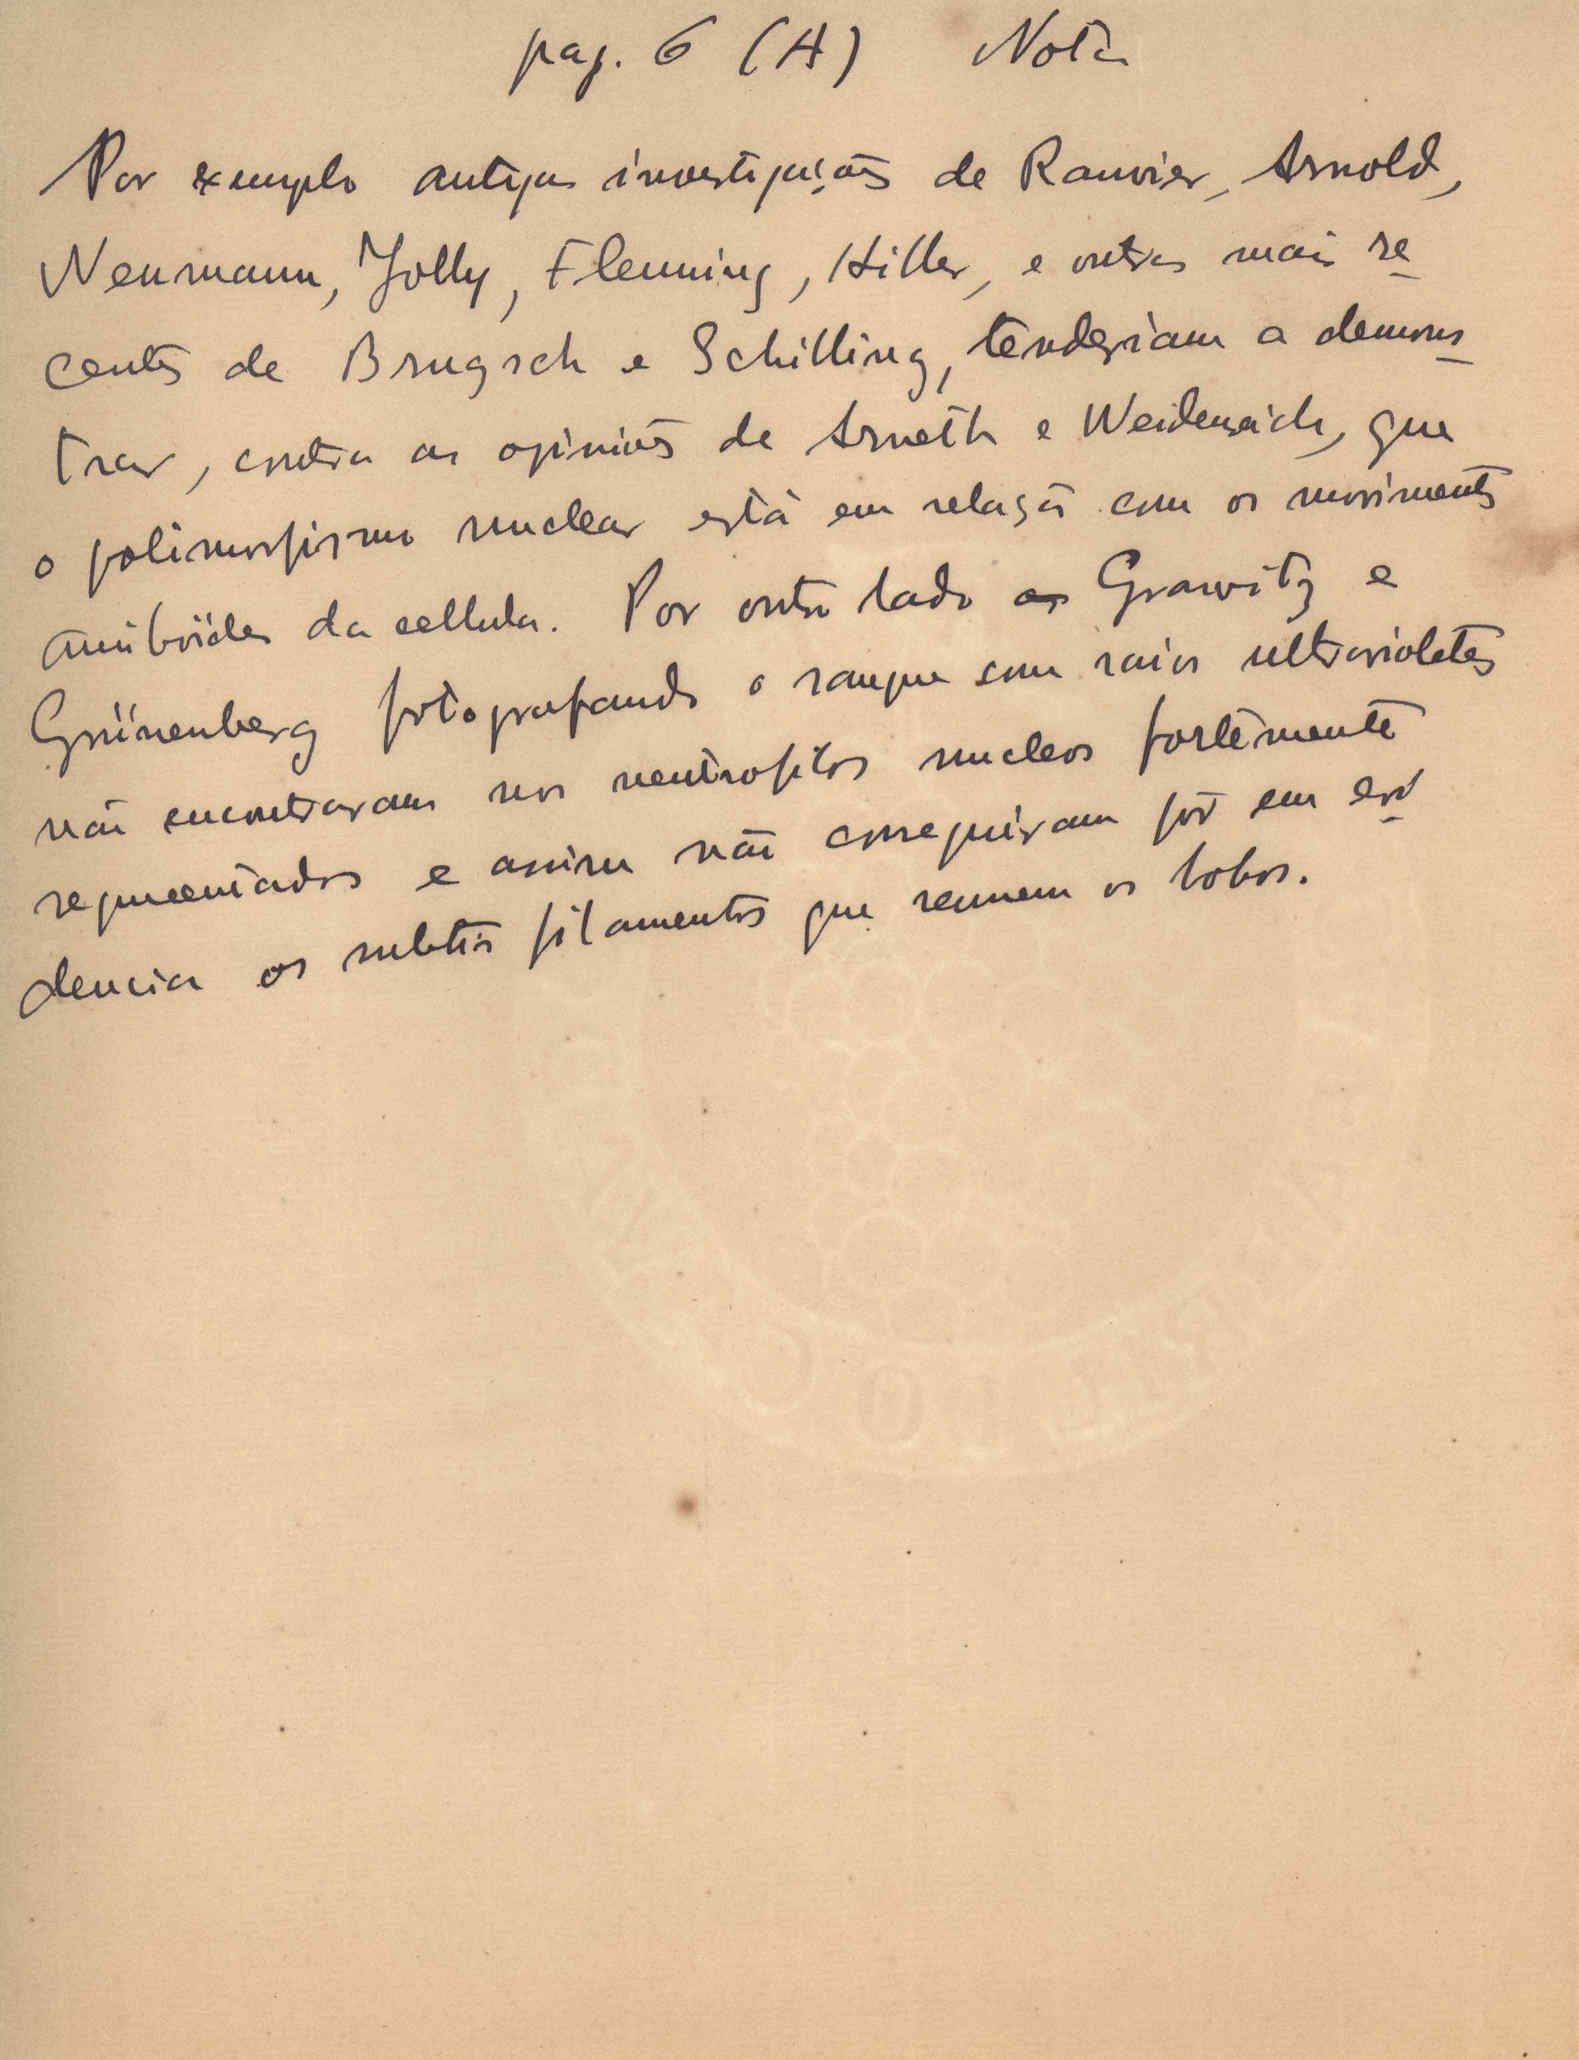 pag. 6 (A) Nota
Por exemplo antigas investigações de Ranvier, Arnold,
Neumann, Jolly, Flemming, Hitler, e outras mais re
centes de Brugsch e Schilling, tenderiam a demons
trar, contra as opiniões de Arneth e Weidenreich, que
o polimorfismo nuclear está em relação com os movimentos
amiboides da cellula. Por outro lado as Grawitz e
Grünenberg fotografando o sangue com raios ultravioletes
não encontraram nos neutrofilos nucleos fortemente
segmentados e assim não conseguiram pôr em evi
dencia os subtis filamentos que reunem os lobos.